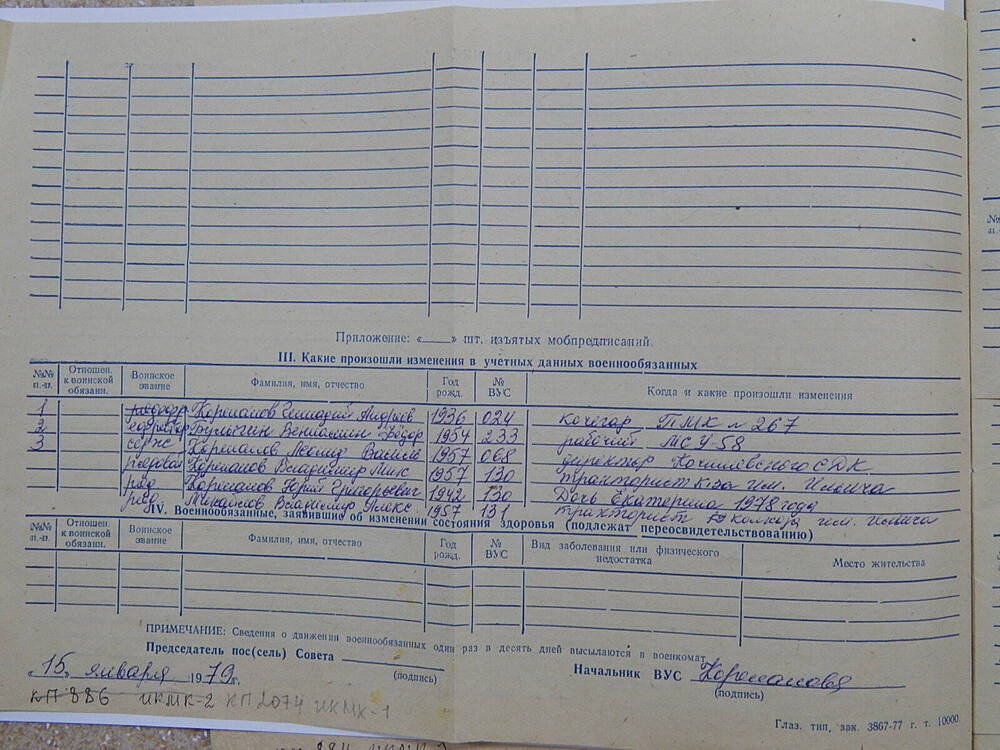 Приложение: «____» шт. изъятых мобпредписаний.
III. Какие произошли изменения в учетных данных военнообязанных
№№ п.-п. Отношен. к воинской обязанн. Воинское звание Фамилия, имя, отчество Год рожд. № ВУС Когда и какие произошли изменения
1 рядовой Корепанов Геннадий Андреев 1936 024 кочегар ПМК № 267
2 ефрейтор Булыгин Вениамин Фёдор 1954 233 рабочий МСУ-58
3 серж Корепанов Леонид Василь 1957 068 директор Кочишевского СДК
рядовой Корепанов Владимир Мих 1957 130 тракторист к-за им. Ильича
ряд Корепанов Юрий Григорьевич 1942 130 Дочь Екатерина 1978 года
ряд. Михайлов Владимир Алекс. 1957 131 тракторист колхоза им. Ильича
IV. Военнообязанные, заявившие об изменении состояния здоровья (подлежат переосвидетельствованию)
№№ п.-п. Отношен. к воинской обязанн. Воинское звание Фамилия, имя, отчество Год рожд. № ВУС Вид заболевания или физического недостатка Место жительства
ПРИМЕЧАНИЕ: Сведения о движении военнообязанных один раз в десять дней высылаются в военкомат.
Председатель пос(сель) Совета
(подпись)
Начальник ВУС Корепанова
(подпись)
„15„ января 1979г.
КП 886 ИКМК-2 КП 2074 ИКМК-1
Глаз. тип. зак. 3867-77 г. т. 10000.